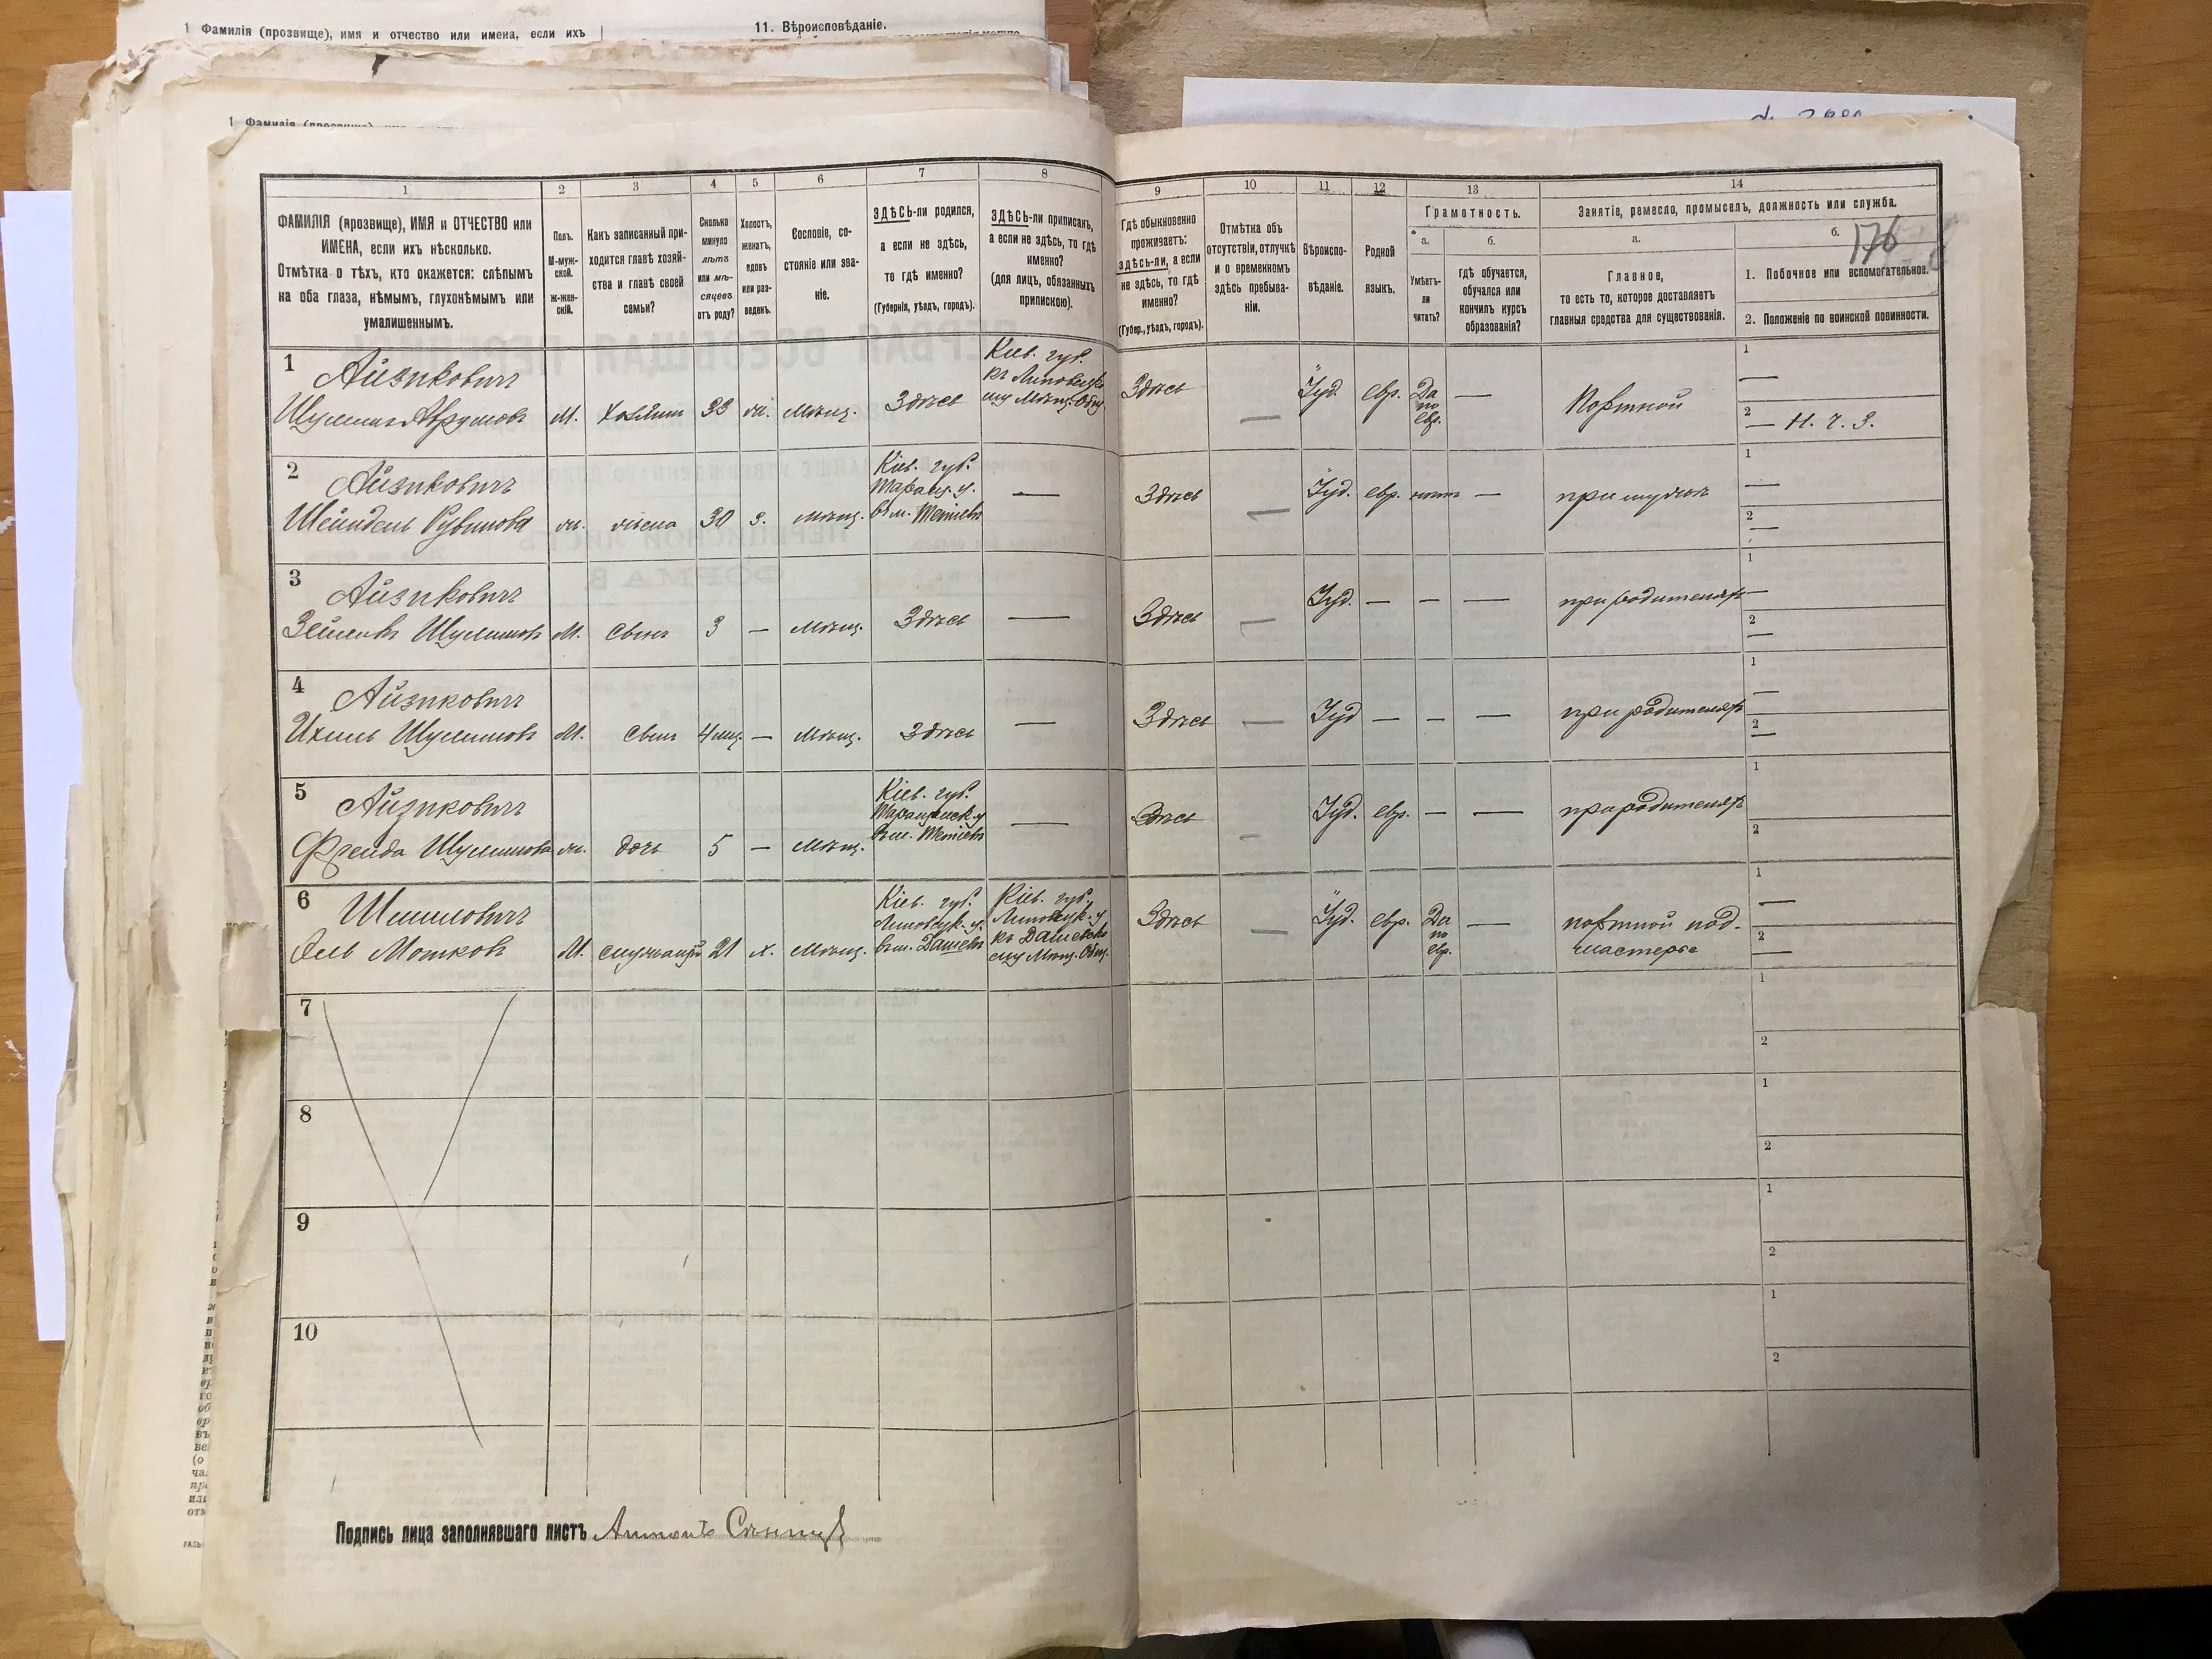 1 Фамилія (прозвище), имя и отчество или имена, если ихъ
11. Вѣроисповѣданіе.
1 2 3 4 5 6 7 8 9 10 11 12 13 14
ФАМИЛІЯ (прозвище), ИМЯ и ОТЧЕСТВО или
ИМЕНА, если ихъ нѣсколько.
Отмѣтка о тѣхъ, кто окажется: слѣпымъ
на оба глаза, нѣмымъ, глухонѣмымъ или
умалишеннымъ.
Полъ.
М-муж-
ской.
ж-жен-
скій.
Какъ записанный при-
ходится главѣ хозяй-
ства и главѣ своей
семьи?
Сколько
минуло
лѣтъ
или мѣ-
сяцевъ
отъ роду?
Холостъ,
женатъ,
вдовъ
или раз-
веденъ.
Сословіе, со-
стояніе или зва-
ніе.
ЗДѢСЬ-ли родился,
а если не здѣсь,
то гдѣ именно?
(Губернія, уѣздъ, городъ).
ЗДѢСЬ-ли приписанъ,
а если не здѣсь, то гдѣ
именно?
(для лицъ, обязанныхъ
припискою).
Гдѣ обыкновенно
проживаетъ:
здѣсь-ли, а если
не здѣсь, то гдѣ
именно?
(Губер., уѣздъ, городъ).
Отмѣтка объ
отсутствіи, отлучкѣ
и о временномъ
здѣсь пребыва-
ніи.
Вѣроиспо-
вѣданіе.
Родной
языкъ.
Грамотность.
а.
Умѣетъ-
ли
читать?
б.
гдѣ обучается,
обучался или
кончилъ курсъ
образованія?
Занятіе, ремесло, промыселъ, должность или служба.
а.
Главное,
то есть то, которое доставляетъ
главныя средства для существованія.
б.
176
1. Побочное или вспомогательное.
2. Положеніе по воинской повинности.
1 Айзиковичъ
Шулимъ Аврумовъ М. Хозяинъ 33 ж. Мѣщ. Здѣсь
Кіев. губ.
къ Липовецко
му Мѣщ. Общ.
Здѣсь — Іуд. евр. Да
по
евр.
— Портной
1 —
2 — Н. ч. З.
2 Айзиковичъ
Шейндель Рувинова ж. жена 30 з. мѣщ.
Кіев. губ.
Таращ. у.
въ м. Тетіевѣ
— Здѣсь — Іуд. евр. нѣтъ — при мужѣ
1 —
2 —
3 Айзиковичъ
Шулимовъ М. сынъ 3 — Мѣщ. Здѣсь — Здѣсь — Іуд. — — — при родителяхъ
1 —
2 —
4 Айзиковичъ
Ихиль Шулимовъ М. сынъ 4 мѣц. — Мѣщ. Здѣсь — Здѣсь — Іуд — — — при родителяхъ
1 —
2 —
5 Айзиковичъ
Фрейда Шулимова ж. дочь 5 — Мѣщ.
Кіев. губ.
Таращанск. у
въ м. Тетіевѣ
— Здѣсь — Іуд. евр. — — при родителяхъ
1
2
6 Шмиловичъ
Мошковъ М. служащій 21 х. Мѣщ.
Кіев. губ.
Липовецк. у.
въ м. Дашевѣ
Кіев. губ.
Липовецк. у
къ Дашевско
му Мѣщ. Общ.
Здѣсь — Іуд. евр. Да
по
евр.
— портной под-
мастерье
1 —
2 —
7
1
2
8
1
2
9
1
2
10
1
2
Подпись лица заполнявшаго листъ